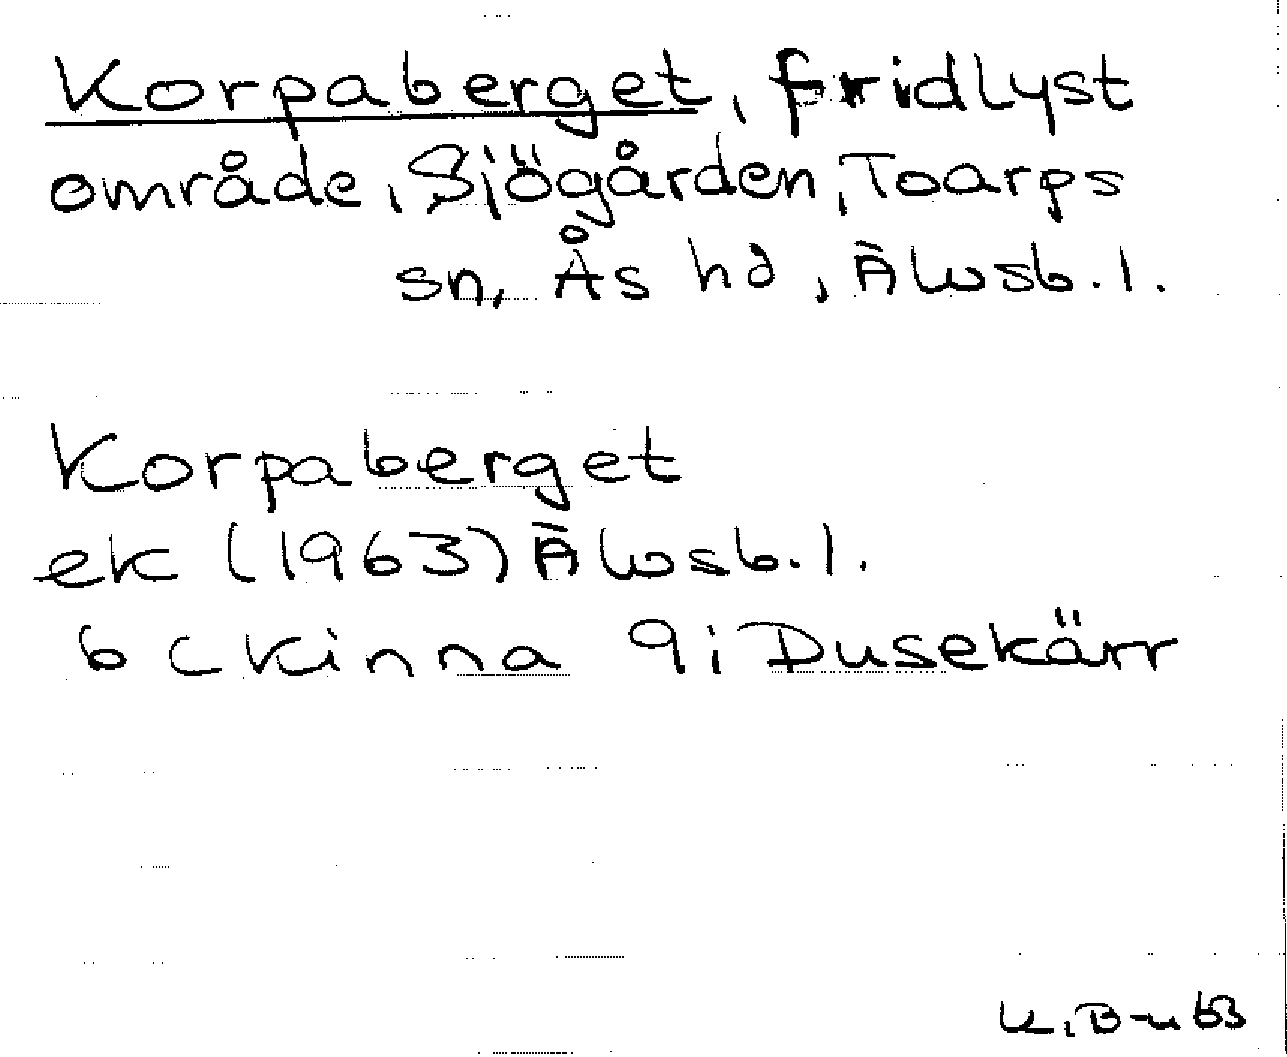 Korpaberget, fridlyst
område, Sjögården, Toarps
sn, Ås hd, Älvsb. l.
Korpaberget
ek (1963) Älvsb. l.
6 c Kinna 9i Dusekärr
63